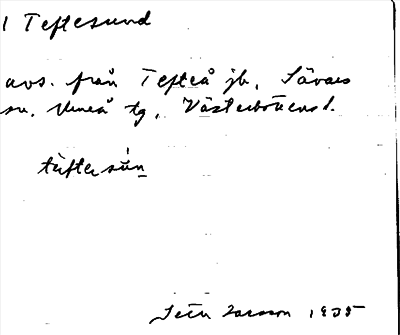 1 Teftesund
avs. från Tefteå jb, Sävars
sn. Umeå tg, Västerbottens l.
täftersún
Seth Larsson 1935